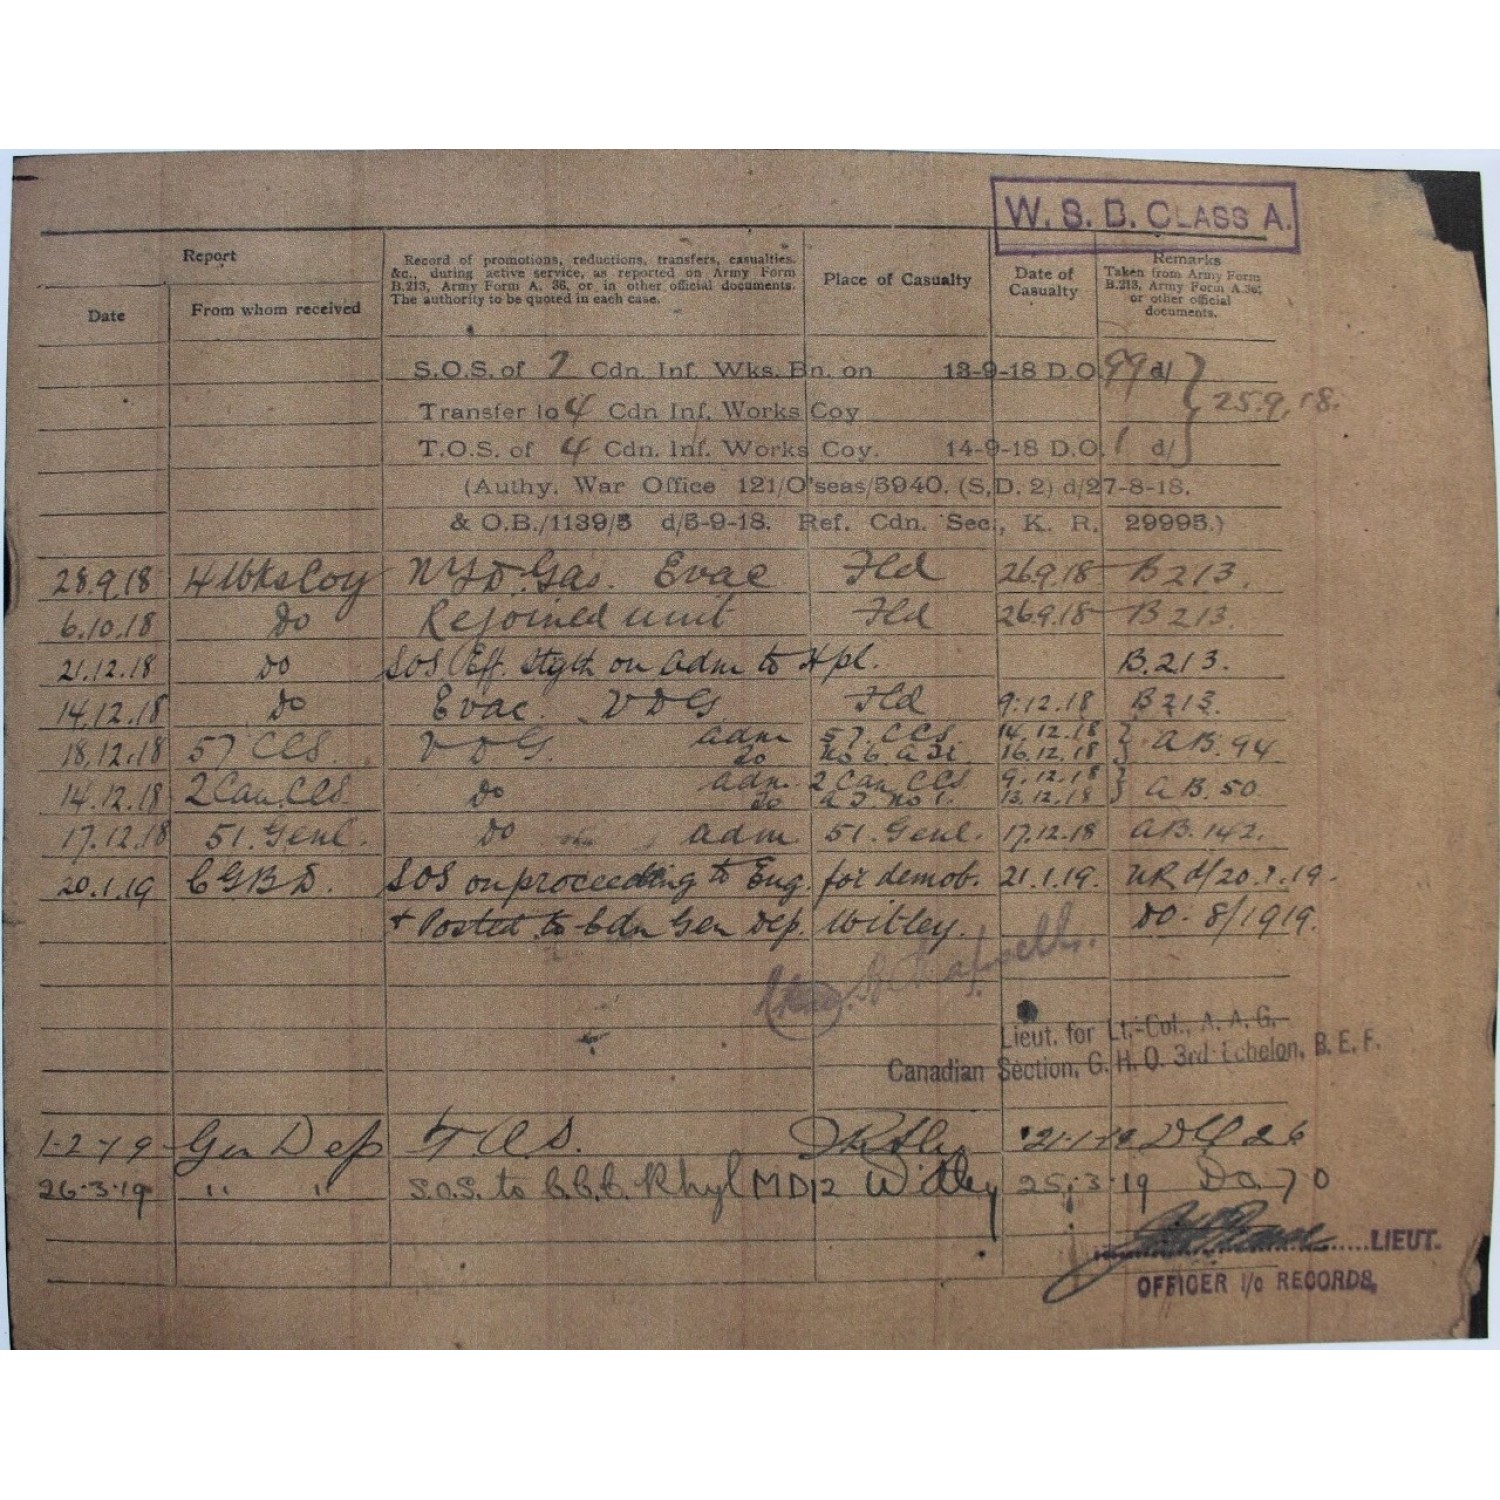 W. S. B. CLASS A.
Report
Date
From whom received
Record of promotions, reductions, transfers, casualties,
&c., during active service, as reported on Army Form
B.213, Army Form A. 36, or in other official documents.
The authority to be quoted in each case.
Place of Casualty
Date of
Casualty
Remarks
Taken from Army Form
B.213, Army Form A.36,
or other official
documents.
S.O.S. of 7 Cdn. Inf. Wks. Bn. on 13-9-18 D.O. 99 d/
Transfer to 4 Cdn Inf. Works Coy 25.9.18.
T.O.S. of 4 Cdn. Inf. Works Coy. 14-9-18 D.O. 1 d/
(Authy. War Office 121/O'seas/5940. (S.D. 2) d/27-8-18.
& O.B./1139/5 d/5-9-18. Ref. Cdn. Sec., K. R. 29995.)
28.9.18 4 Wks Coy NYD Gas. Evac Fld 26.9.18 B 213.
6.10.18 Do Rejoined unit Fld 26.9.18 B 213.
21.12.18 Do SOS Eff. Stgth on adm to Hpl. B.213.
14.12.18 Do Evac. VDG Fld 9.12.18 B 213.
18.12.18 57 CCS. VDG. adm 57. CCS 14.12.18
To No 6 A Tr 16.12.18 AB. 94
14.12.18 2 Can. CCS. Do adm. 2 Can CCS 9.12.18
To A T No 1. 13.12.18 AB. 50
17.12.18 51. Genl. Do adm 51. Genl. 17.12.18 AB. 142.
20.1.19 CGBD. SOS on proceeding to Eng. for demob. 21.1.19. NR d/20.1.19.
+ Posted to Cdn Gen Dep. Witley. DO. 8/1919.
Lieut. for Lt.-Col., A. A. G.
Canadian Section, G. H. Q. 3rd Echelon, B. E. F.
1-2-19 Gen Dep T.O.S. 21-1-19 26
26.3.19 " " S.O.S. to C.C.C. Rhyl MD12 Witley 25.3.19 Do. 70
LIEUT.
OFFICER i/c RECORDS.